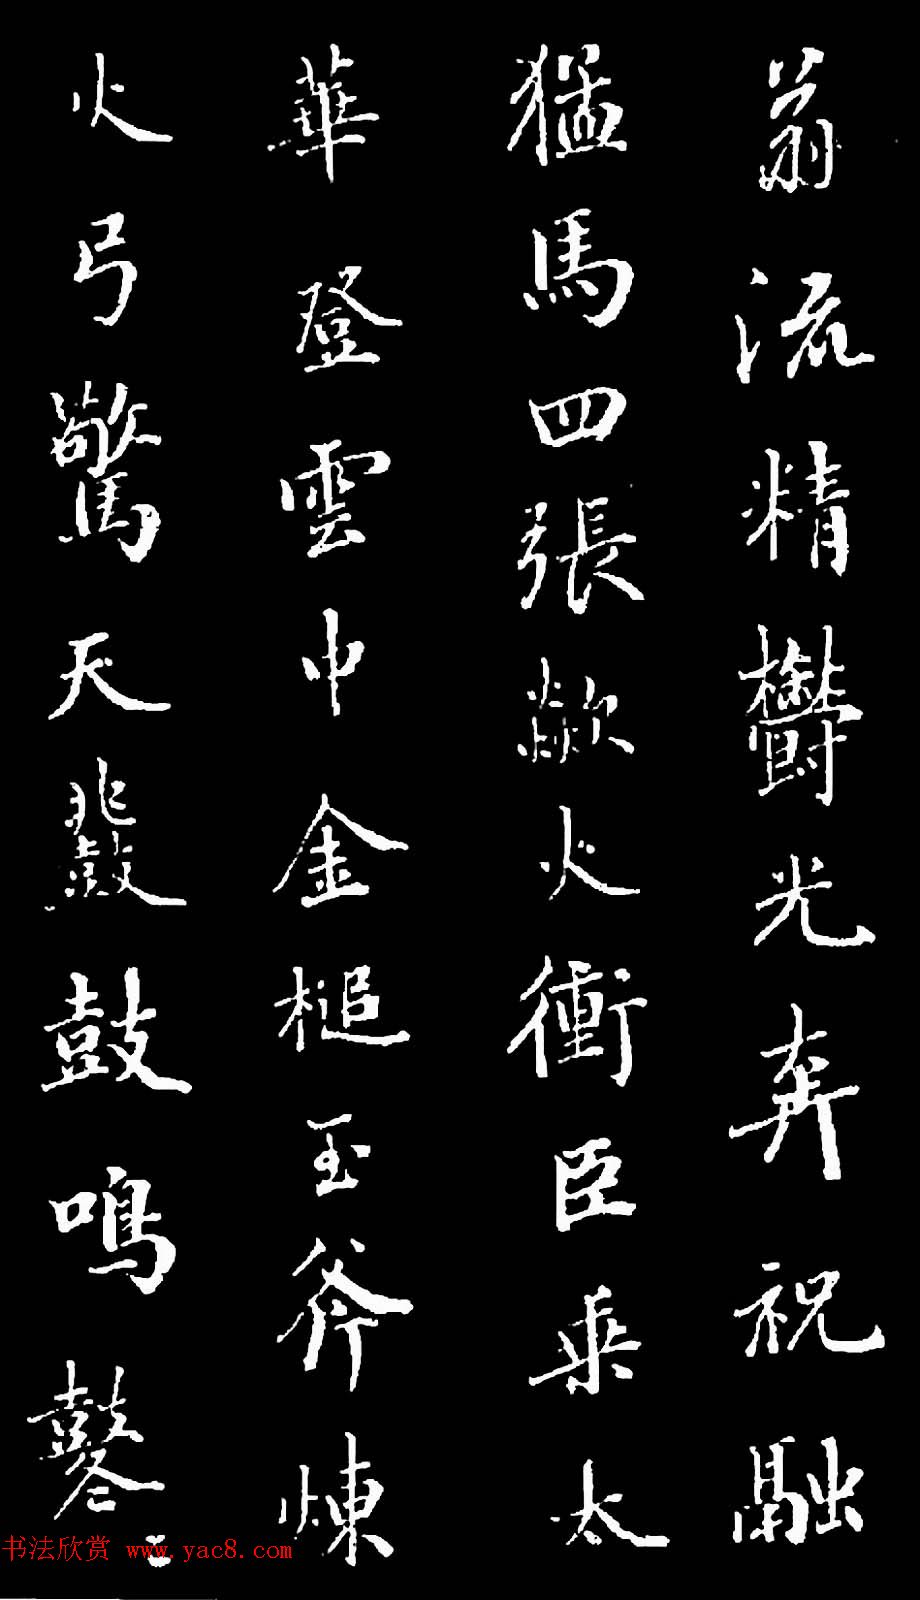 翕流精鬱光奔祝融
猛馬四張歘火衝臣乘太
華登雲中金槌玉斧煉
火弓驚天鼗鼓鳴鼕〻
书法欣赏 www.yac8.com